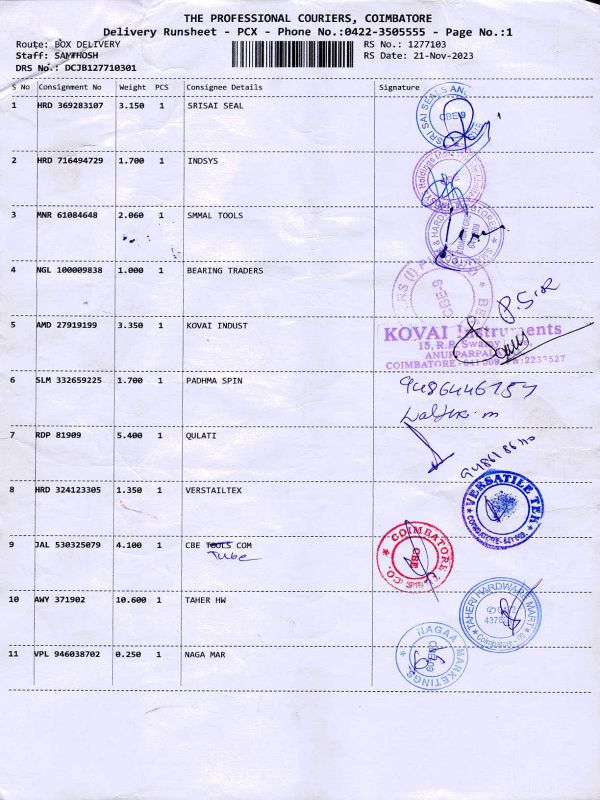 THE PROFESSIONAL COURIERS, COIMBATORE
Delivery Runsheet - PCX - Phone No.:0422-3505555 - Page No.:1
Route: BOX DELIVERY RS No.: 1277103
Staff: SANTHOSH RS Date: 21-Nov-2023
DRS No.: DCJB127710301
S No Consignment No Weight PCS Consignee Details Signature
1 HRD 369283107 3.150 1 SRISAI SEAL
SRI SAI SEALS AND
CBE-9
2 HRD 716494729 1.700 1 INDSYS
Holdings
3 MNR 61084648 2.060 1 SMMAL TOOLS
4 NGL 100009838 1.000 1 BEARING TRADERS
CBE-9
5 AMD 27919199 3.350 1 KOVAI INDUST
KOVAI Instruments
15, R.R. Swamy
COIMBATORE - 641 009.
6 SLM 332659225 1.700 1 PADHMA SPIN
7 RDP 81909 5.400 1 QULATI
8 HRD 324123305 1.350 1 VERSTAILTEX
VERSATILE TEK
COIMBATORE - 641
9 JAL 530325079 4.100 1 CBE TOOLS COM
Tube
COIMBATORE
CO.
10 AWY 371902 10.600 1 TAHER HW
TAHERI HARDWARE MART
11 VPL 946038702 0.250 1 NAGA MAR
NAGAA MARKETINGS